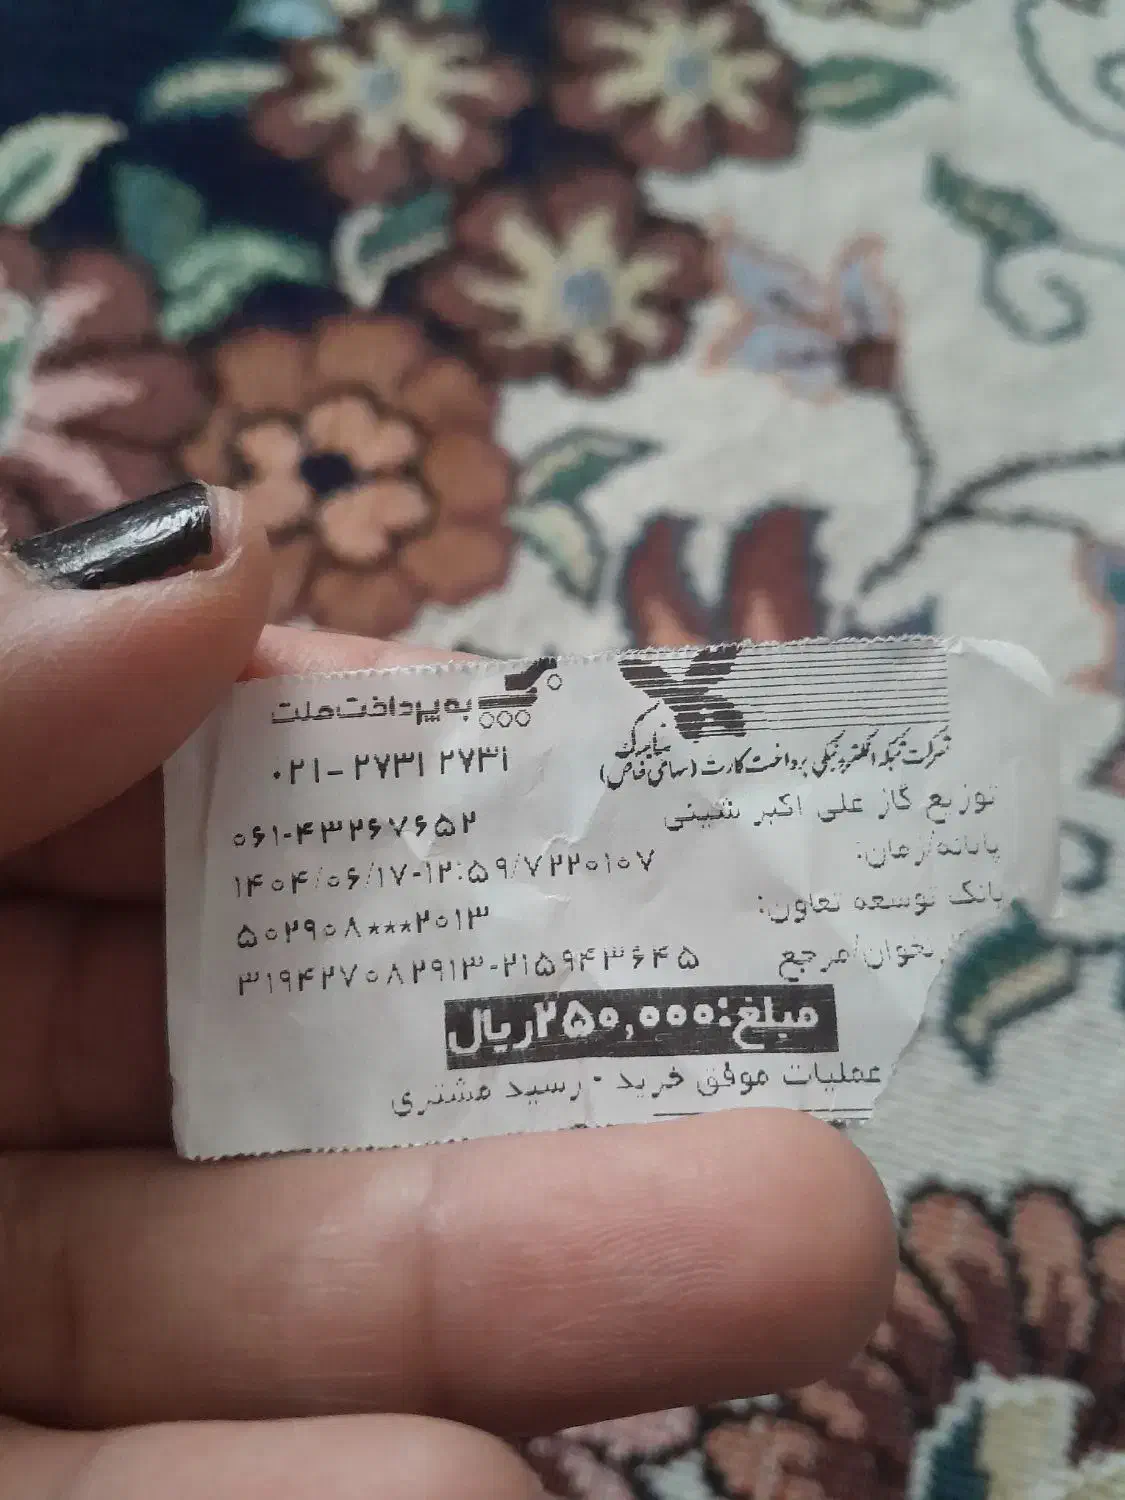 به پرداخت ملت
۰۲۱-۲۷۳۱ ۲۷۳۱
شرکت شبکه الکترونیکی پرداخت کارت (سهامی خاص)
توزیع گاز علی اکبر شینی
۰۶۱-۴۳۲۶۷۶۵۲
پایانه/زمان: ۱۴۰۴/۰۶/۱۷-۱۲:۵۹/۷۲۲۰۱۰۷
بانک توسعه تعاون: ۵۰۲۹۰۸***۲۰۱۳
مرجع ۳۱۹۴۲۷۰۸۲۹۱۳-۲۱۵۹۴۳۶۴۵
مبلغ:۲۵۰,۰۰۰ریال
عملیات موفق خرید - رسید مشتری